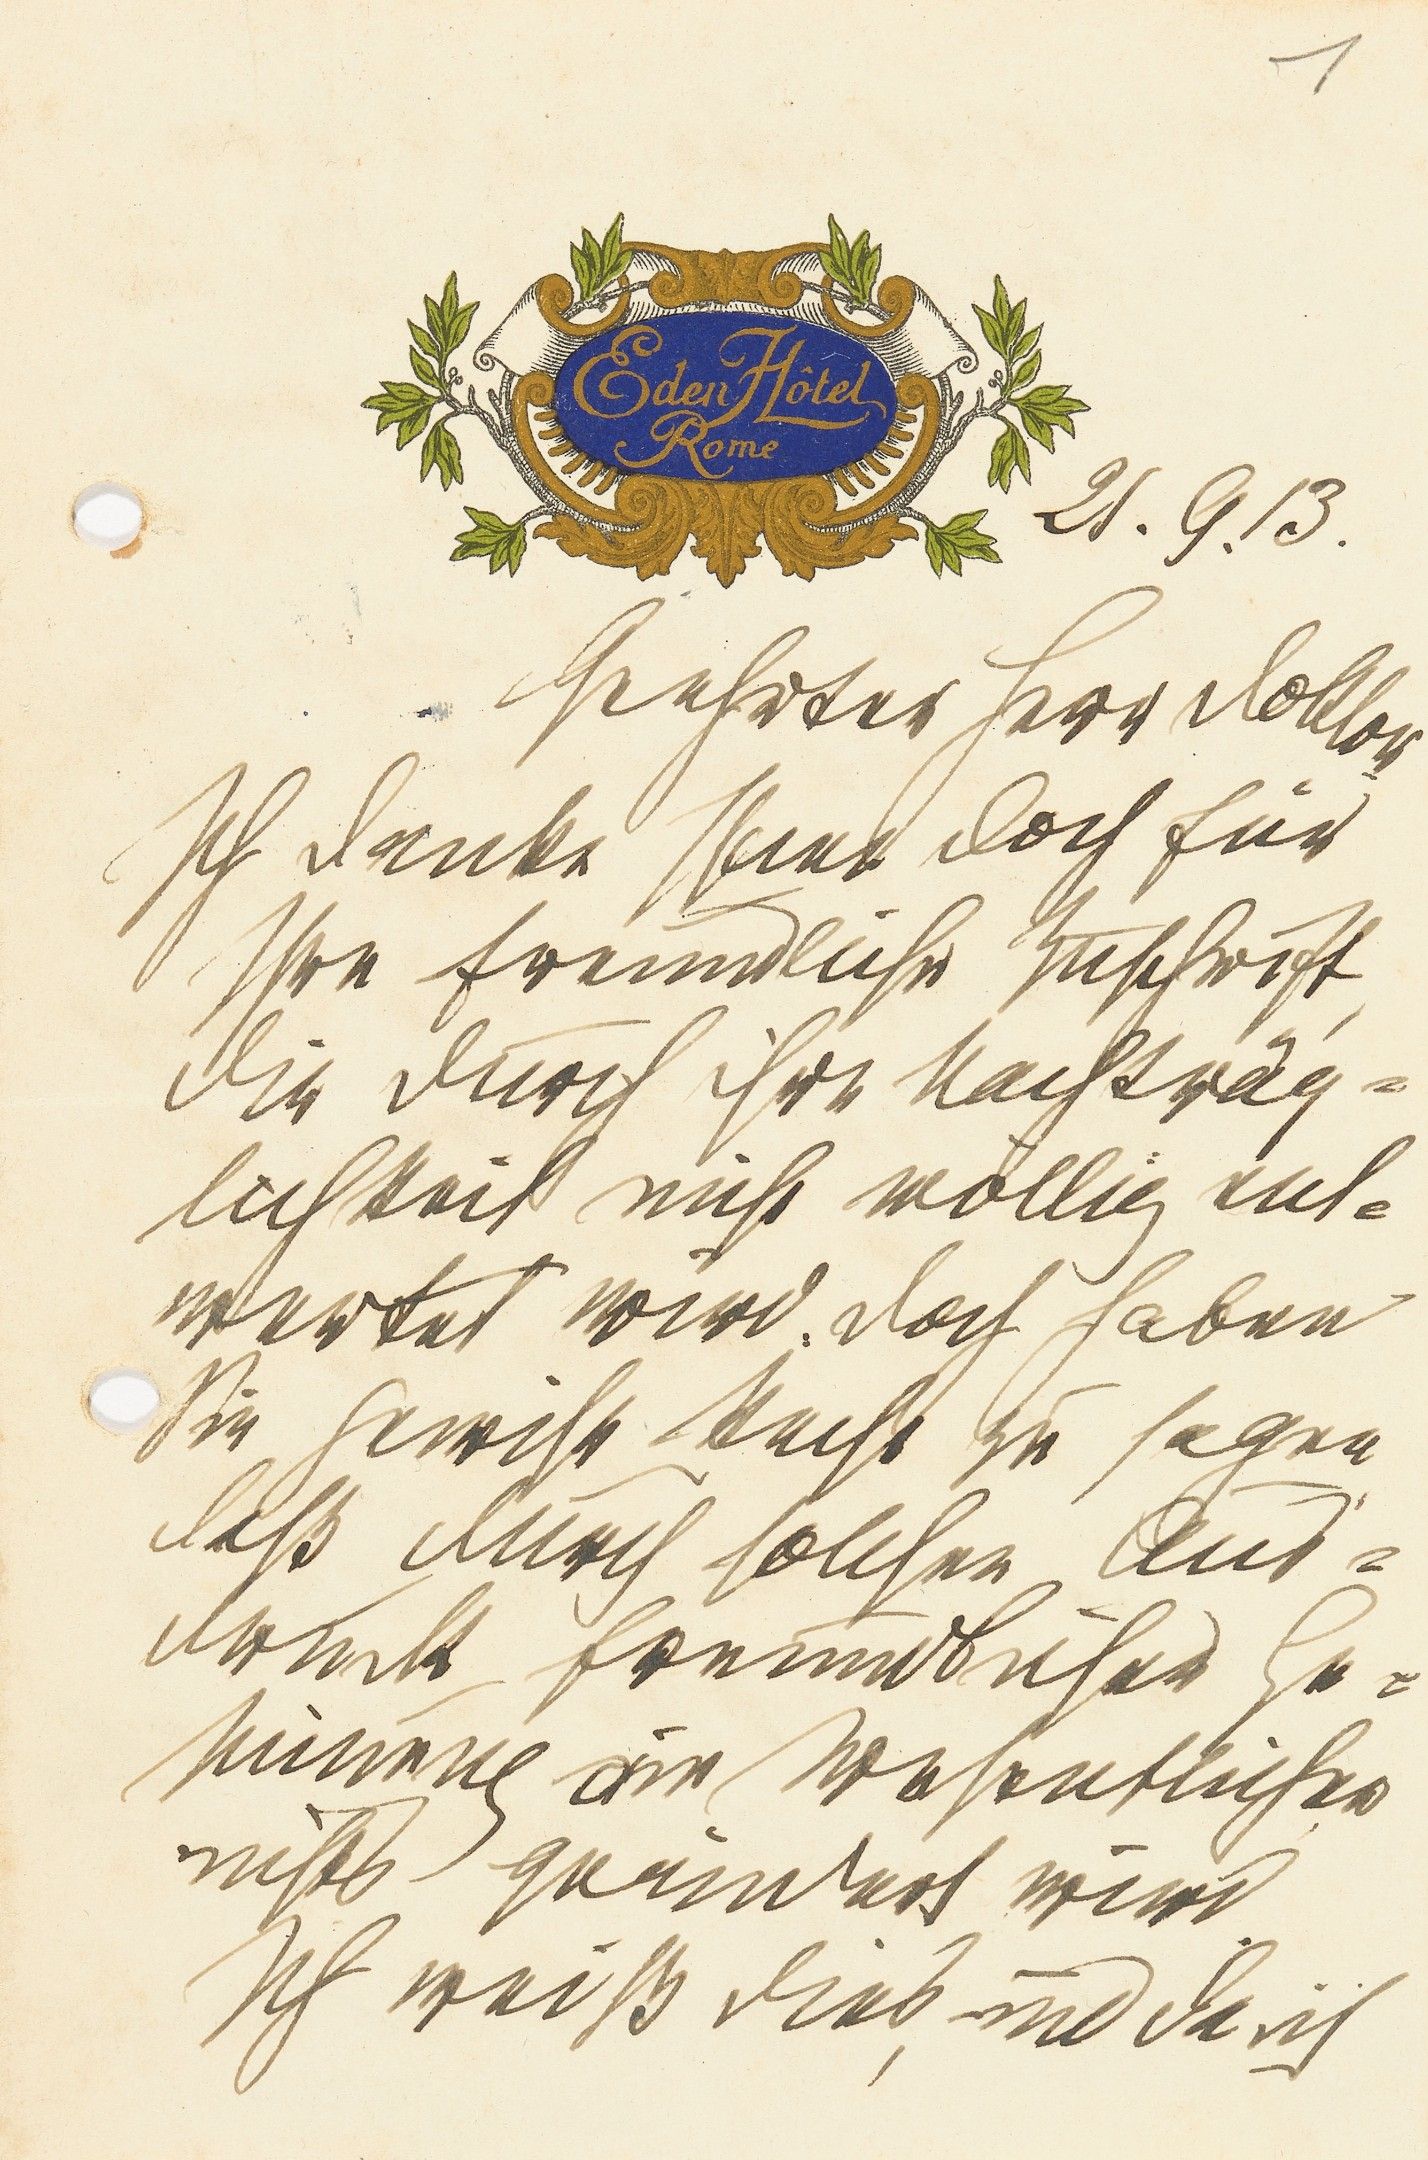 1
Eden Hôtel
Rome
21. 9. 13.
Geehrter Herr Doktor
Ich danke Ihnen doch für
Ihre freundliche Zuschrift,
die durch ihre Nachträg-
lichkeit nicht völlig ent-
wertet wird. Doch haben
Sie Recht zu sagen
daß durch solchen Aus-
druck freundlicher Ge-
sinnung im Wesentlichen
nichts geändert wird
Ich weiß dies, und da ich